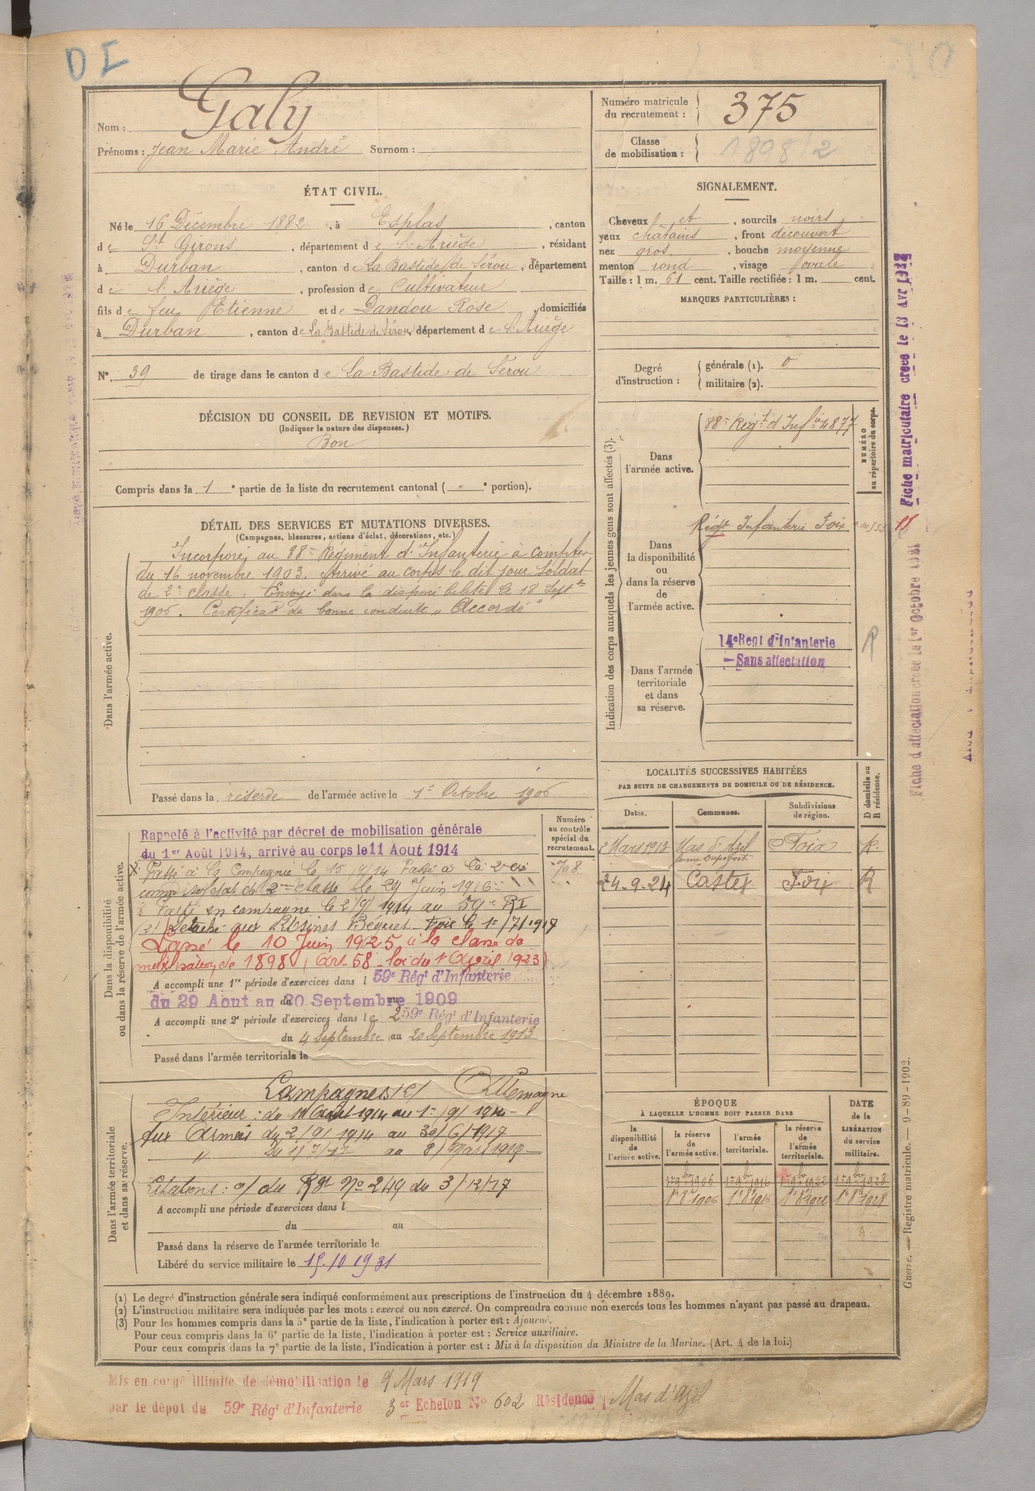 DI
Nom : Galy
Prénoms : Jean Marie André Surnom :
Numéro matricule du recrutement : 375
Classe de mobilisation : 1898/2
ÉTAT CIVIL.
Né le 16 Décembre 1882, à Esplas, canton
de St Girons, département de l'Ariège, résidant
à Durban, canton de La Bastide de Sérou, département
de l'Ariège, profession de Cultivateur
fils de feu Etienne et de Dandou Rose, domiciliés
à Durban, canton de La Bastide de Sérou, département de l'Ariège
N° 39 de tirage dans le canton de La Bastide de Sérou
SIGNALEMENT.
Cheveux et, sourcils noirs
yeux châtains, front découvert
nez gros, bouche moyenne
menton rond, visage ovale
Taille : 1 m. 61 cent. Taille rectifiée : 1 m. cent.
MARQUES PARTICULIÈRES :
Degré d'instruction : générale (1). 0
militaire (2).
DÉCISION DU CONSEIL DE REVISION ET MOTIFS.
(Indiquer la nature des dispenses.)
Bon
Compris dans la 1e partie de la liste du recrutement cantonal ( e portion).
DÉTAIL DES SERVICES ET MUTATIONS DIVERSES.
(Campagnes, blessures, actions d'éclat, décorations, etc.)
Dans l'armée active.
Incorporé au 88e Régiment d'Infanterie à compter
du 16 novembre 1903. Arrivé au corps le dit jour, soldat
de 2e classe. Envoyé dans la disponibilité le 18 Septbre
1906. Certificat de bonne conduite "Accordé"
Passé dans la réserve de l'armée active le 1er Octobre 1906
Indication des corps auxquels les jeunes gens sont affectés (3).
NUMÉRO au répertoire du corps.
Dans l'armée active.
88e Régt d'Infie 4877
Dans la disponibilité ou dans la réserve de l'armée active.
Régt Infanterie Foix
Dans l'armée territoriale et dans sa réserve.
14e Regt d'Infanterie
— Sans affectation
R
Fiche matriculaire créée le 13 Avr
Fiche d'affectation créée le 1er Octobre 1931
LOCALITÉS SUCCESSIVES HABITÉES
PAR SUITE DE CHANGEMENTS DE DOMICILE OU DE RÉSIDENCE.
Dates. Communes. Subdivisions de région. D domicile ou R résidence.
Mars 1913 Mas d'Azil Foix R.
24-9-24 Castex Foix R
Dans la disponibilité ou dans la réserve de l'armée active.
Numéro au contrôle spécial du recrutement.
708
Rappelé à l'activité par décret de mobilisation générale
du 1er Août 1914, arrivé au corps le 11 Aout 1914
2e classe le 29 Juin 1916
Passé en campagne le 2/9/1914 au 59e RI
Détaché aux Usines le 1er/7/1917
Passé le 10 Juin 1925 à la classe de
mobilisation de 1898 (Art 58 loi du 1er Avril 1923)
A accompli une 1re période d'exercices dans l 59e Rég' d'Infanterie
du 29 Aout au 20 Septembre 1909
A accompli une 2e période d'exercices dans le 259e Rég' d'Infanterie
du 4 Septembre au 20 Septembre 1913
Passé dans l'armée territoriale le
Dans l'armée territoriale et dans sa réserve.
Campagnes c/ Allemagne
Intérieur : du 11 Août 1914 au 1er/9/1914
Aux Armées du 2/9/1914 au 30/6/1917
" du 1/7/17 au 8/Mars 1919
Citations : o/ du Rgt N° 249 du 3/12/17
A accompli une période d'exercices dans l
du au
Passé dans la réserve de l'armée territoriale le
Libéré du service militaire le 15.10.1931
ÉPOQUE
À LAQUELLE L'HOMME DOIT PASSER DANS
DATE de la LIBÉRATION du service militaire.
la disponibilité de l'armée active. la réserve de l'armée active. l'armée territoriale. la réserve de l'armée territoriale.
1er 9bre 1906 1er 9bre 1916 1er 9bre 1922 1er 9bre 1928
1er 8bre 1906 1er 8bre 1916 1er 8bre 1922 1er 8bre 1928
Guerre. — Registre matricule. — 9-89-1902.
(1) Le degré d'instruction générale sera indiqué conformément aux prescriptions de l'instruction du 4 décembre 1889.
(2) L'instruction militaire sera indiquée par les mots : exercé ou non exercé. On comprendra comme non exercés tous les hommes n'ayant pas passé au drapeau.
(3) Pour les hommes compris dans la 5e partie de la liste, l'indication à porter est : Ajourné.
Pour ceux compris dans la 6e partie de la liste, l'indication à porter est : Service auxiliaire.
Pour ceux compris dans la 7e partie de la liste, l'indication à porter est : Mis à la disposition du Ministre de la Marine. (Art. 4 de la loi.)
Mis en congé illimité de démobilisation le 9 Mars 1919
par le dépôt du 59e Rég' d'Infanterie 3er Echelon N° 602 Résidence Mas d'Azil